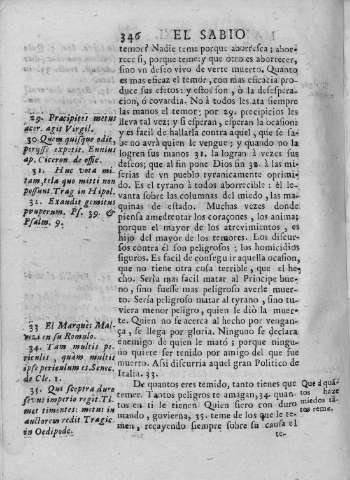 346 EL SABIO
temor? Nadie teme porque aborresca; abor-
rece si, porque teme: y que otro es aborrecer,
sino vn deseo vivo de verte muerto. Quanto
es mas eficaz el temor, con mas eficacia pro-
duce sus efetos: y estos son, ò la desespera-
cion, ò covardia. No à todos les ata siempre
las manos el temor; por 29. precipicios les
lleva tal vez; y si esperan, esperan la ocasion:
y es facil de hallarla contra aquel, que se sa-
be no avrà quien le vengue; y quando no la
logren sus manos 31. la logran à veces sus
deseos; que al fin pone Dios fin 32. à las mi-
serias de vn pueblo tyranicamente oprimi-
do. Es el tyrano à todos aborrecible: èl le-
vanta sobre las columnas del miedo, las ma-
quinas de estado. Muchas vezes donde
piensa amedrentar los coraçones, los anima;
porque el mayor de los atrevimientos, es
hijo del mayor de los temores. Los discur-
sos contra èl son peligrosos; los homicidios
sigoros. Es facil de consegu ir aquella ocasion,
que no tiene otra cosa terrible, que el he-
cho. Serìa mas facil matar al Principe bue-
no, sino fuesse mas peligroso averle muer-
to. Serìa peligroso matar al tyrano, sino tu-
viera menor peligro, quien le diò la muer-
te. Quien no se acerca al hecho por vengan-
ça, se llega por gloria. Ninguno se declara
enemigo de quien le matò; porque ningu-
no quiere ser tenido por amigo del que fue
muerto. Assi discurria aquel gran Politico de
Italia. 33.
De quantos eres temido, tanto tienes que
temer. Tantos peligros te amagan, 34. quan-
tos en ti le tienen Quien fiero con duro
mando, govierna, 35. teme de los que le te-
men, recayendo siempre sobre su causa el
te-
29. Præcipites metus
acer. agit Virgil.
30. Quem quisque odit,
perysse expetit. Ennius
ap. Ciceron de offic.
31. Huc vota mi
tam, tela quo mitti non
possunt. Trag in Hipol.
32. Exaudit gemitus
pauperum. Ps. 39. &
Psalm. 9.
33 El Marquès Mal
vezzi en su Romulo.
34. Tam multis pe
riculis, quam multis
ipse periculum es. Senec.
de Cle. 1.
35. Qui sceptra duro
sævus imperio regit. Ti
met timentes: metus in
auctorem redit Tragic.
in Oedipode.
Que d quã-
tos haze
miedos tã-
tos reme.